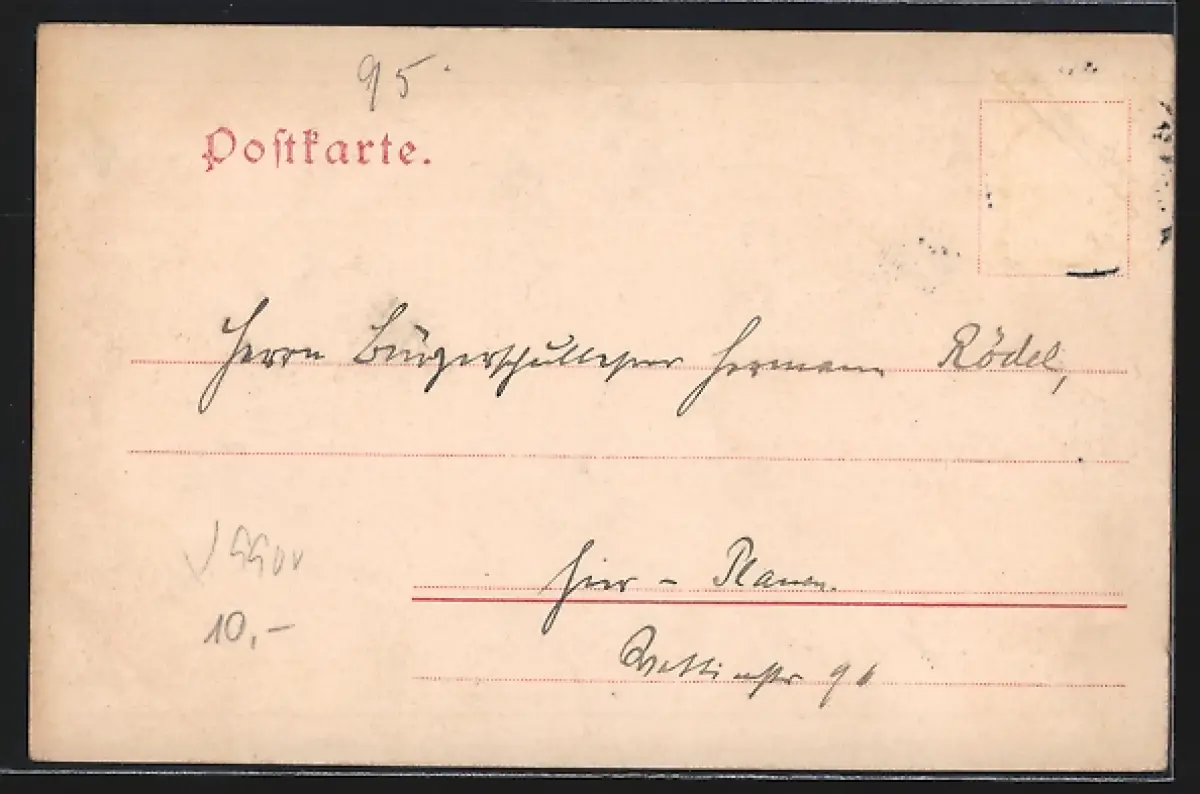 95.
Postkarte.
Herrn Bürgerschullehrer Hermann Rödel,
hier – Plauen.
10,–
Wettinstr 96